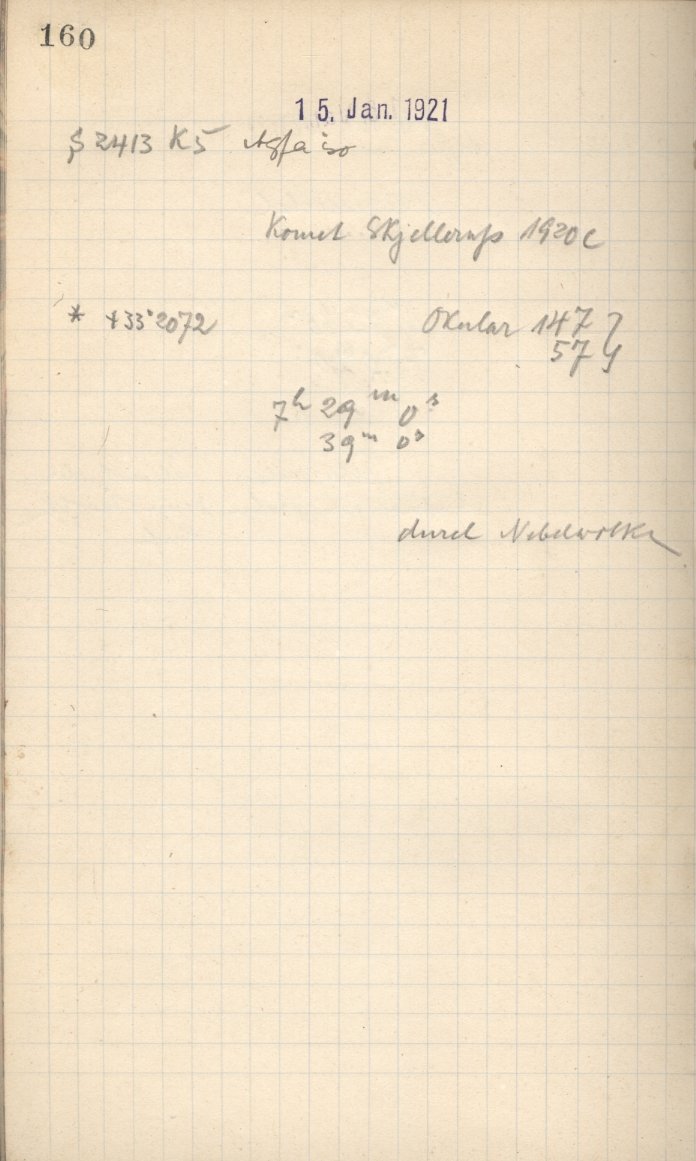 160
15. Jan. 1921
S 2413 K5 Agfa iso
Komet Skjellerup 1920c
* +33°2072 Okular 147
57
7h 29m 0s
39m 0s
durch Nebelwolke